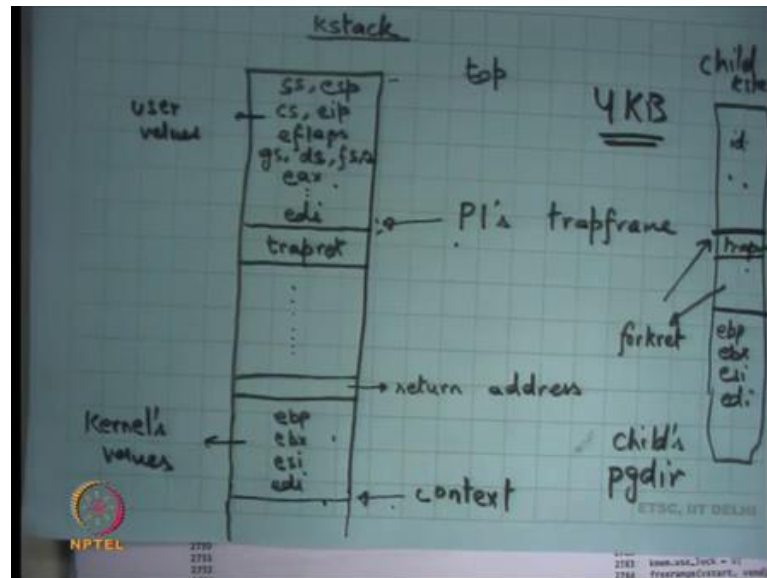 kstack
top
ss, esp
user values
cs, eip
eflags
gs, ds, fs,
eax
edi
4KB
P1's trapframe
trapret
return address
Kernel's values
ebp
ebx
esi
edi
context
child
id
trap
forkret
ebp
ebx
esi
edi
child's
pgdir
ETSC, IIT DELHI
NPTEL
2751
2772
2783
2784